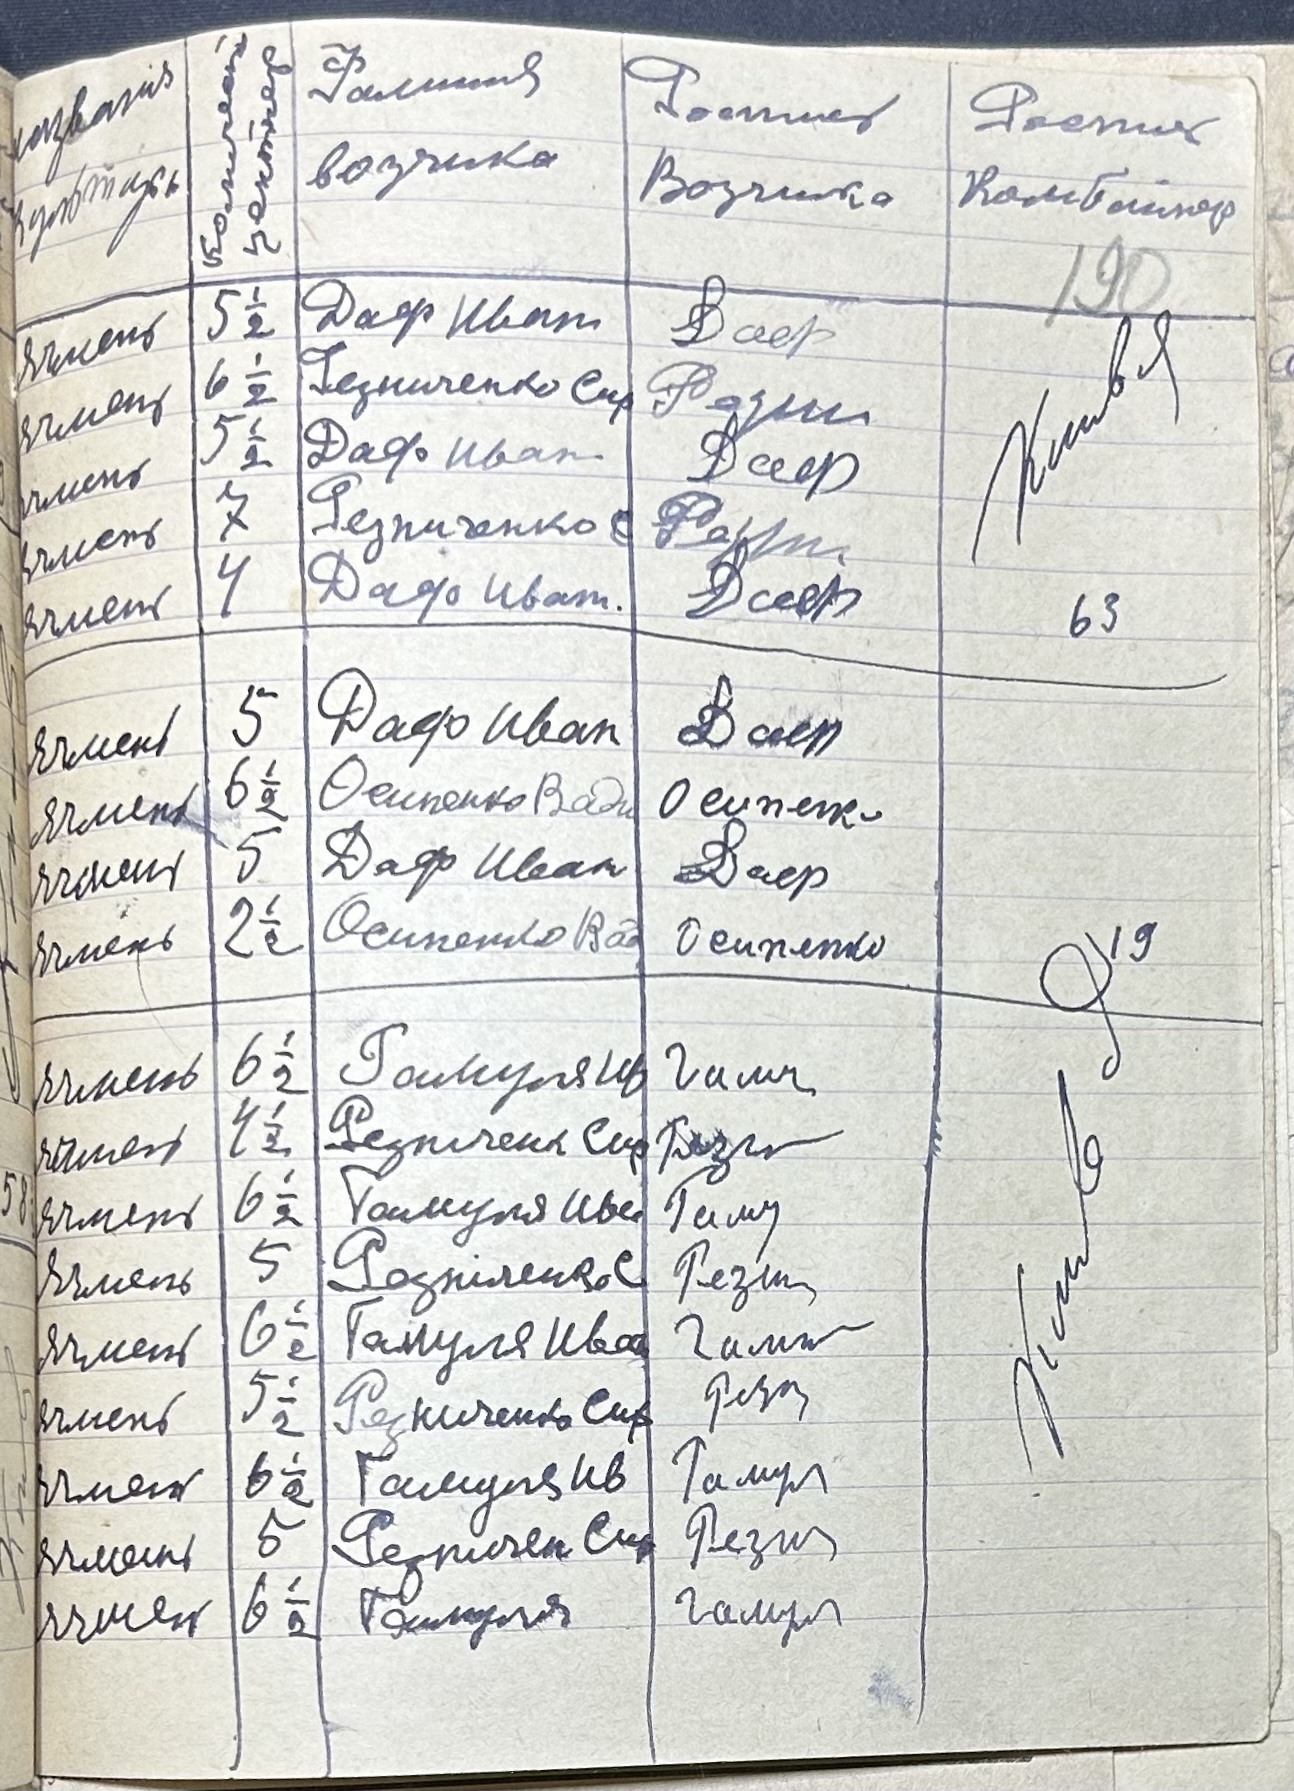 названия количест центнер Фамилия Роспись Роспись
культуры возчика Возчика Комбайнер
190
ячмень 5 1/2 Даф Иван Даф
ячмень 6 1/2 Резниченко Сир Резни
ячмень 5 1/2 Даф Иван Даф
ячмень 7 Резниченко С Резн
ячмень 4 Даф Иван. Даф 63
ячмень 5 Даф Иван Даф
ячмень 6 1/2 Осипенко Вади Осипенко
ячмень 5 Даф Иван Даф
ячмень 2 1/2 Осипенко Вад Осипенко 19
ячмень 6 1/2 Гамуля Ив Гаму
ячмень 4 1/2 Резниченк Сир Резн
ячмень 6 1/2 Гамуля Ива Гаму
ячмень 5 Резніченко С Резни
ячмень 6 1/2 Гамуля Ива Гаму
ячмень 5 1/2 Резниченко Сир Резн
ячмень 6 1/2 Гамуля Ив Гамул
ячмень 5 Резничен Сир Резни
ячмен 6 1/2 Гамуля Гамул
58